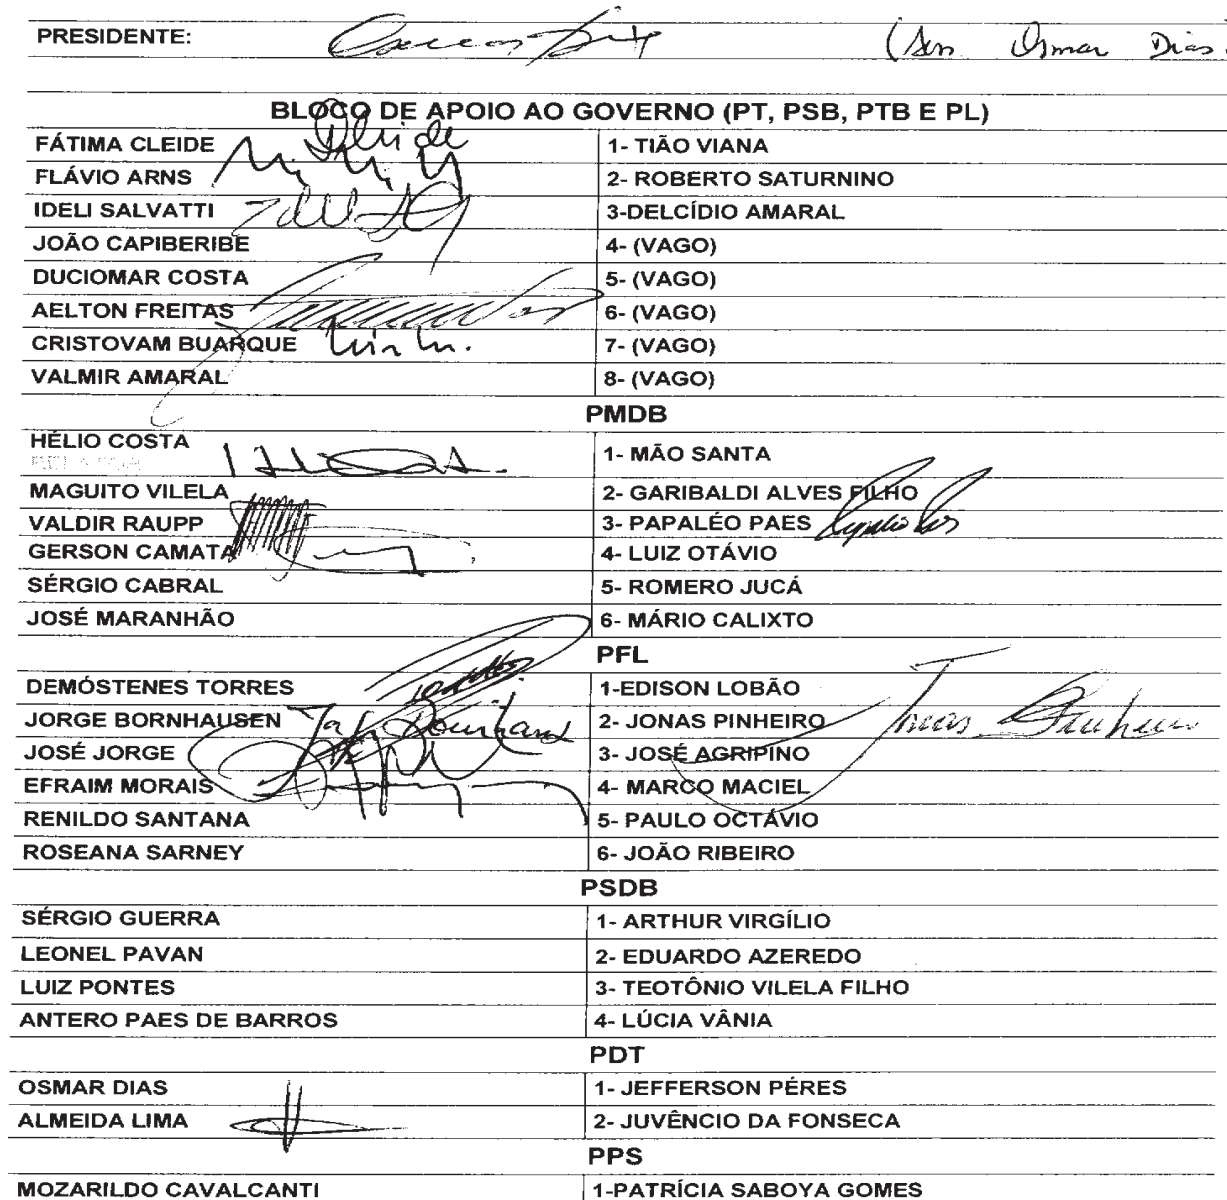 PRESIDENTE: (Sen Osmar Dias)
BLOCO DE APOIO AO GOVERNO (PT, PSB, PTB E PL)
FÁTIMA CLEIDE Cleide 1- TIÃO VIANA
FLÁVIO ARNS 2- ROBERTO SATURNINO
IDELI SALVATTI 3-DELCÍDIO AMARAL
JOÃO CAPIBERIBE 4- (VAGO)
DUCIOMAR COSTA 5- (VAGO)
AELTON FREITAS 6- (VAGO)
CRISTOVAM BUARQUE 7- (VAGO)
VALMIR AMARAL 8- (VAGO)
PMDB
HÉLIO COSTA 1- MÃO SANTA
RELATOR
MAGUITO VILELA 2- GARIBALDI ALVES FILHO
VALDIR RAUPP 3- PAPALÉO PAES
GERSON CAMATA 4- LUIZ OTÁVIO
SÉRGIO CABRAL 5- ROMERO JUCÁ
JOSÉ MARANHÃO 6- MÁRIO CALIXTO
PFL
DEMÓSTENES TORRES 1-EDISON LOBÃO
JORGE BORNHAUSEN 2- JONAS PINHEIRO Jonas Pinheiro
JOSÉ JORGE 3- JOSÉ AGRIPINO
EFRAIM MORAIS 4- MARCO MACIEL
RENILDO SANTANA 5- PAULO OCTÁVIO
ROSEANA SARNEY 6- JOÃO RIBEIRO
PSDB
SÉRGIO GUERRA 1- ARTHUR VIRGÍLIO
LEONEL PAVAN 2- EDUARDO AZEREDO
LUIZ PONTES 3- TEOTÔNIO VILELA FILHO
ANTERO PAES DE BARROS 4- LÚCIA VÂNIA
PDT
OSMAR DIAS 1- JEFFERSON PÉRES
ALMEIDA LIMA 2- JUVÊNCIO DA FONSECA
PPS
MOZARILDO CAVALCANTI 1-PATRÍCIA SABOYA GOMES